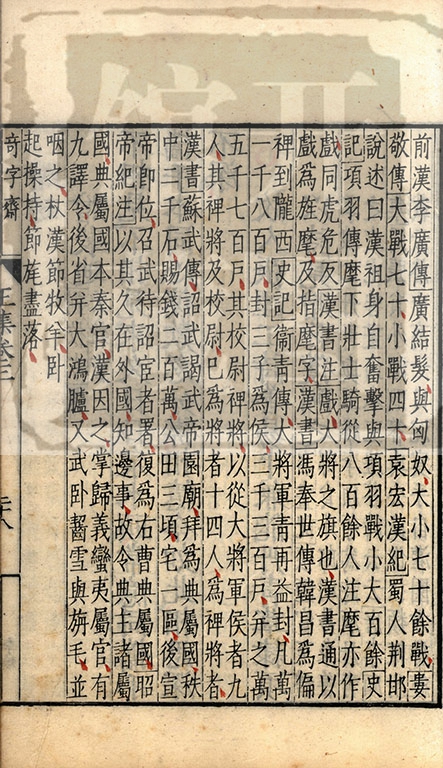 前漢李廣傳廣結髮與匈奴大小七十餘戰婁
敬傳大戰七十小戰四十袁宏漢紀蜀人荆邯
說述曰漢祖身自奮擊與項羽戰小大百餘史
記項羽傳麾下壯士騎從八百餘人注麾亦作
戲同虎危反漢書注戲大將之旗也漢書通以
戲爲旌麾及指麾字漢書馮奉世傳韓昌爲偏
裨到隴西史記衞青傳大將軍青再益封凡萬
一千八百戸封三子爲侯三千三百戸弁之萬
五千七百戸其校尉裨將以從大將軍侯者九
人其裨將及校尉已爲將者十四人爲裨將者
漢書蘇武傳詔武謁武帝園廟拜爲典屬國秩
中二千石賜錢二百萬公田二頃宅一區後宣
帝卽位召武待詔宦者署復爲右曹典屬國昭
帝紀注以其久在外國知邊事故令典主諸屬
國典屬國本秦官漢因之掌歸義蠻夷屬官有
九譯令後省弁大鴻臚又武卧齧雪與旃毛並
咽之杖漢節牧羊卧
起操持節旄盡落
奇字齋